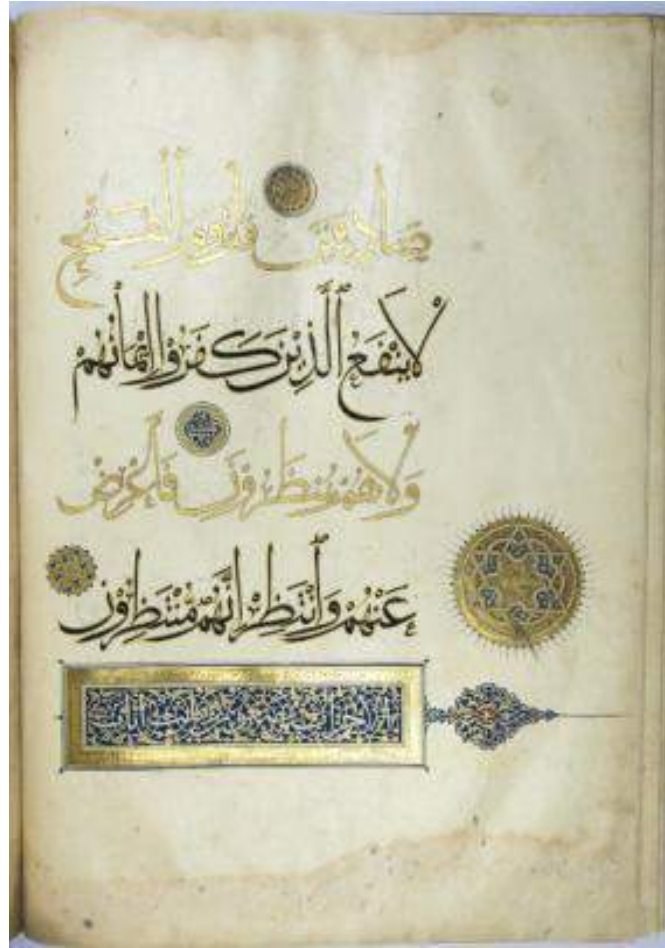 صَادِقِينَ قُلْ يَوْمَ الْفَتْحِ
لَا يَنْفَعُ الَّذِينَ كَفَرُوا إِيمَانُهُمْ
وَلَا هُمْ يُنْظَرُونَ فَأَعْرِضْ
عَنْهُمْ وَانْتَظِرْ إِنَّهُمْ مُنْتَظِرُونَ